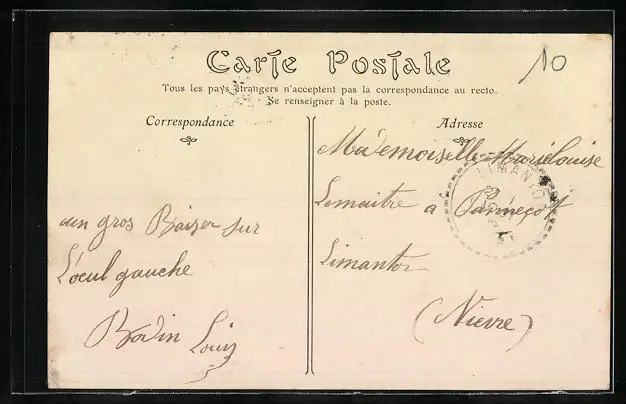 Carte Postale
10
Tous les pays étrangers n'acceptent pas la correspondance au recto.
Se renseigner à la poste.
Correspondance
Adresse
un gros Baiser sur
L'oeul gauche
Bodin Louis
Mademoiselle Marielouise
Lemaitre a Panneçot
Limanton
(Nievre)
LIMANTO